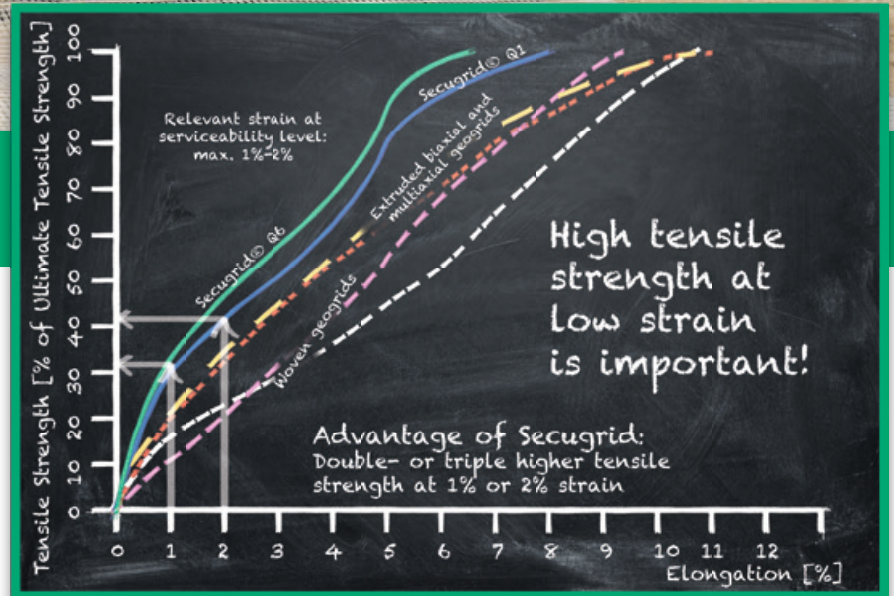 Tensile Strength [% of Ultimate Tensile Strength]
100
90
80
70
60
50
40
30
20
10
0
Relevant strain at
serviceability level:
max. 1%-2%
Secugrid® Q6
Secugrid® Q1
Extruded biaxial and
multiaxial geogrids
Woven geogrids
High tensile
strength at
low strain
is important!
Advantage of Secugrid:
Double- or triple higher tensile
strength at 1% or 2% strain
0 1 2 3 4 5 6 7 8 9 10 11 12
Elongation [%]